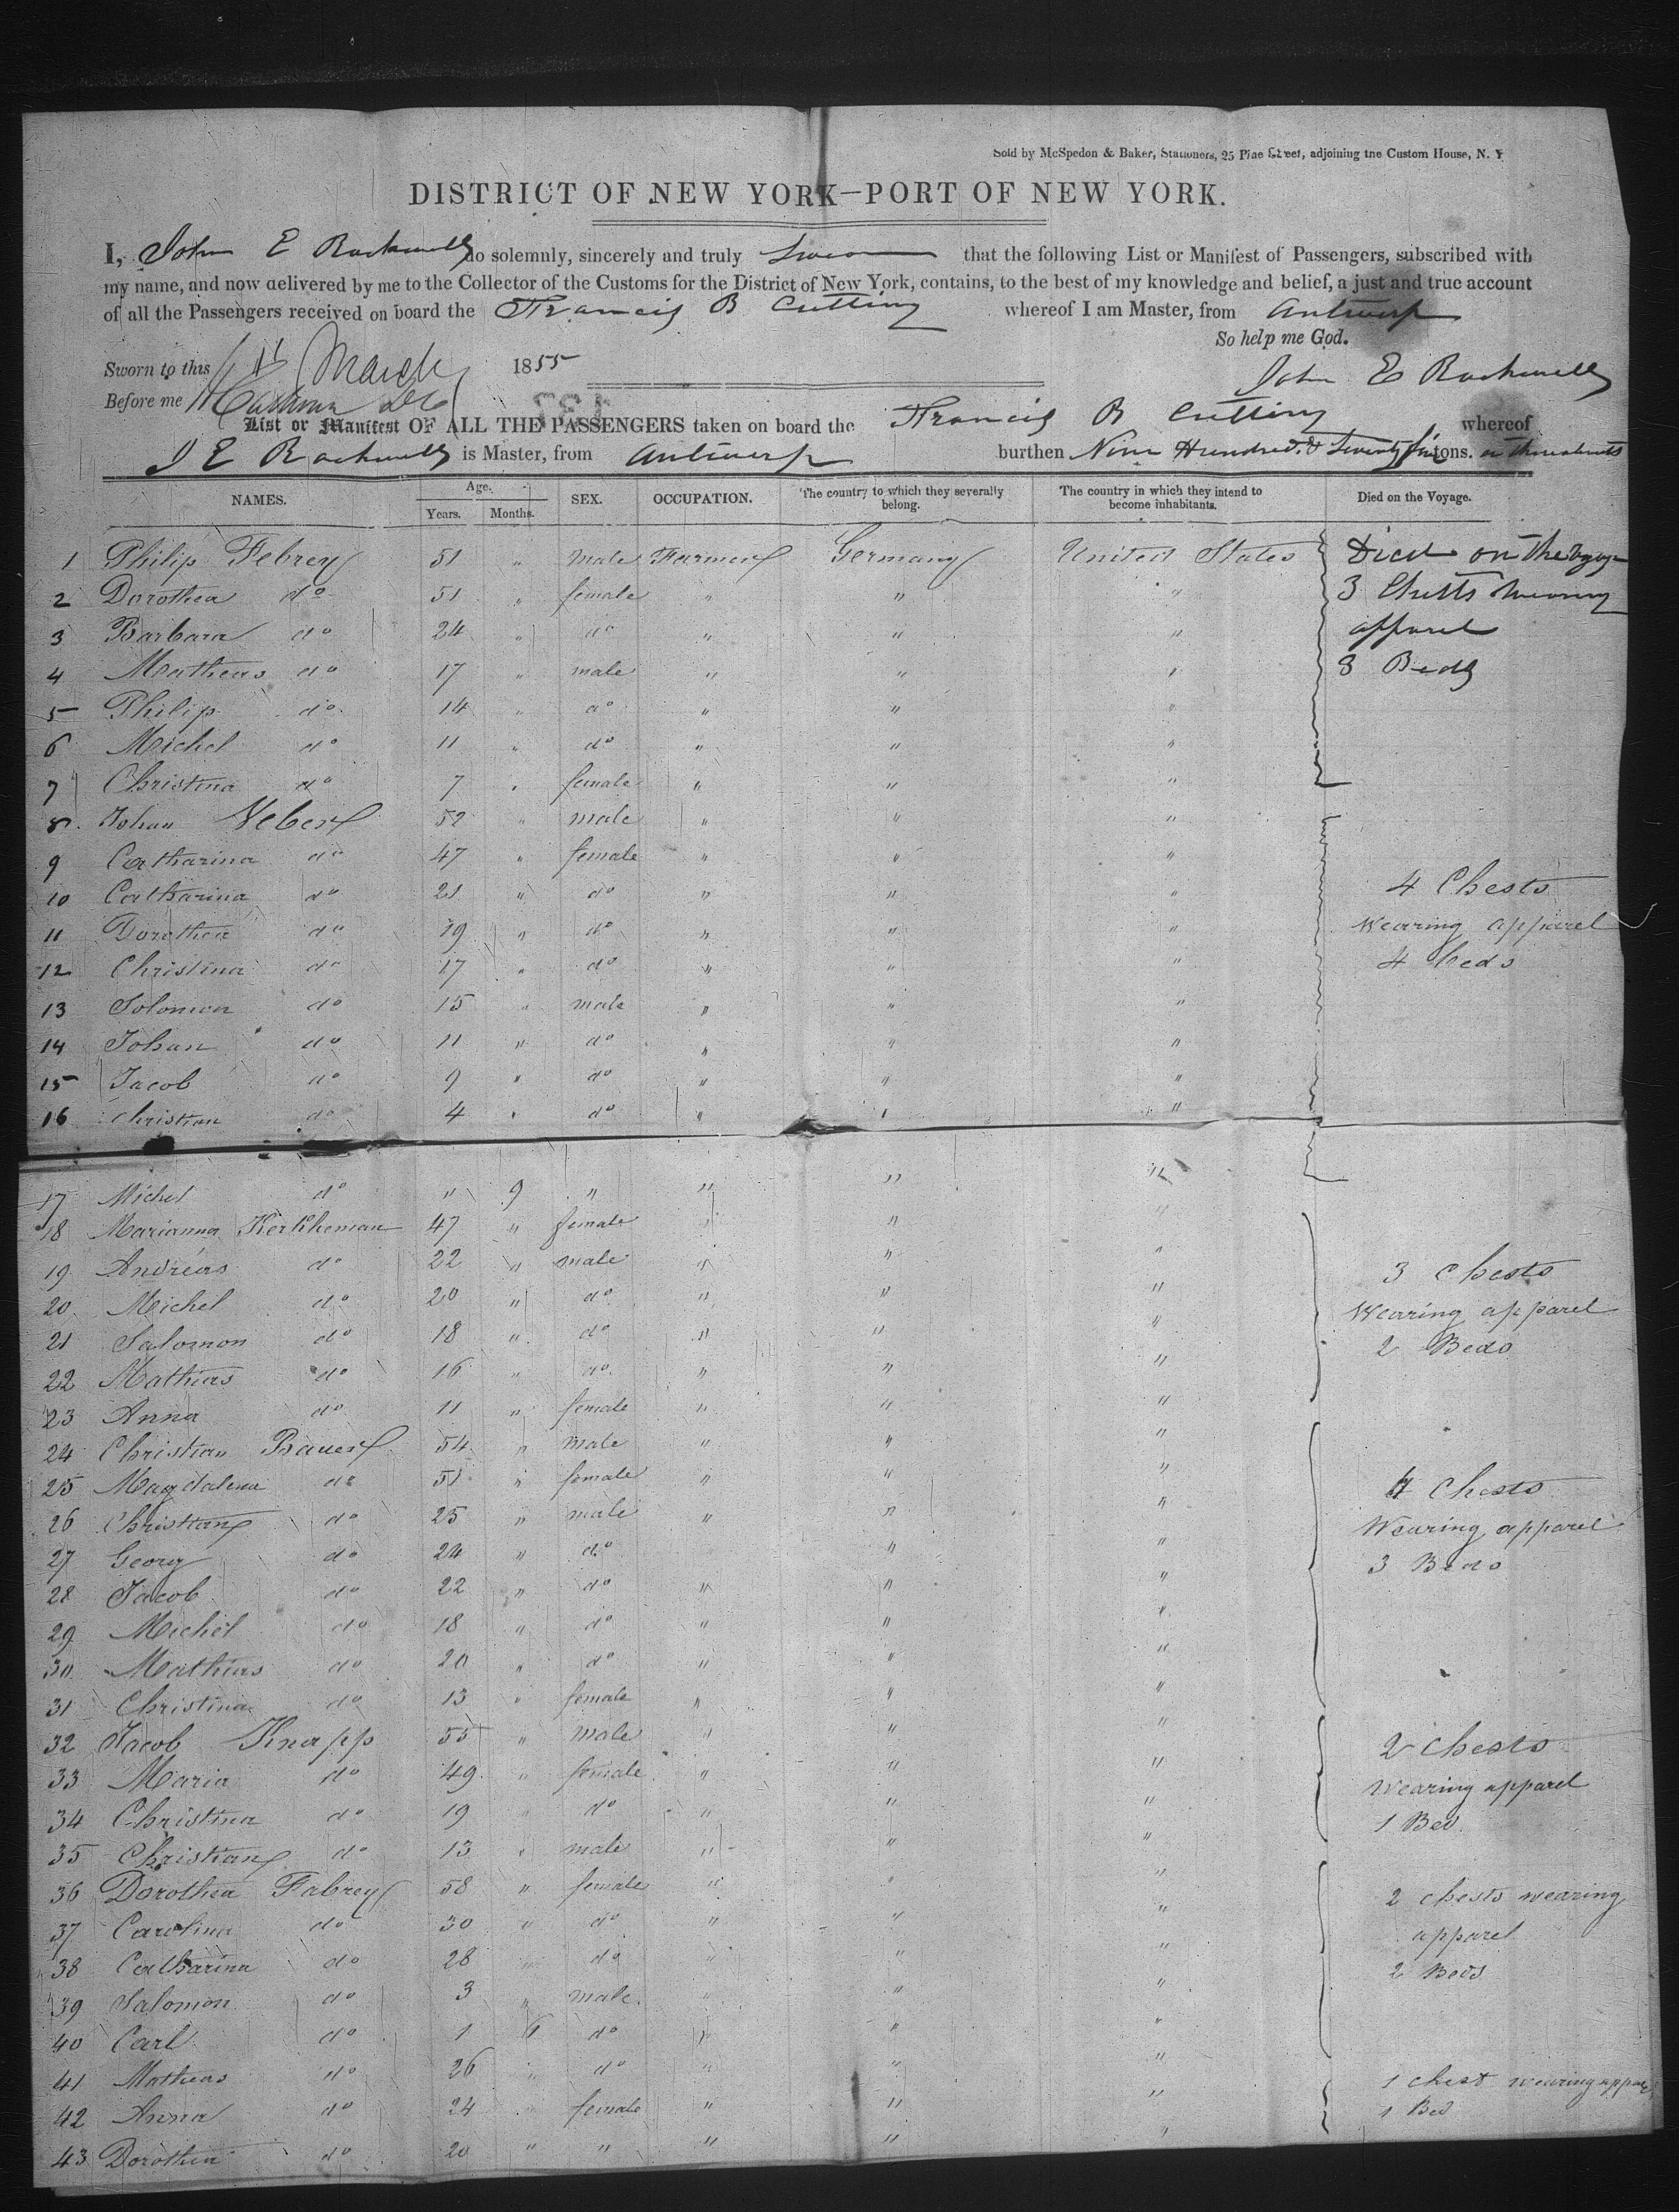 Sold by McSpedon & Baker, Stationers, 25 Pine Street, adjoining the Custom House, N. Y
DISTRICT OF NEW YORK—PORT OF NEW YORK.
I, John E Rockwell do solemnly, sincerely and truly Swear that the following List or Manifest of Passengers, subscribed with
my name, and now delivered by me to the Collector of the Customs for the District of New York, contains, to the best of my knowledge and belief, a just and true account
of all the Passengers received on board the Francis B Cutting whereof I am Master, from Antwerp
So help me God.
Sworn to this March 1855
John E Rockwell
Before me
List or Manifest OF ALL THE PASSENGERS taken on board the Francis B Cutting whereof
J E Rockwell is Master, from Antwerp burthen Nine Hundred & Seventy Six tons.
NAMES. Age. Years. Months. SEX. OCCUPATION. The country to which they severally belong. The country in which they intend to become inhabitants. Died on the Voyage.
1 Philip Febrey 51 " male Farmer Germany United States Died on the Voyage
2 Dorothea do 51 " female " " " 3 Chests Wearing
3 Barbara do 24 " do " " " apparel
4 Matheus do 17 " male " " " 3 Beds
5 Philip do 14 " do " " "
6 Michel do 11 " do " " "
7 Christina do 7 " female " " "
8 Johan Veber 52 " male " " "
9 Catharina do 47 " female " " "
10 Catharina do 21 " do " " " 4 Chests
11 Dorothea do 19 " do " " " Wearing apparel
12 Christina do 17 " do " " " 4 beds
13 Solomon do 15 " male " " "
14 Johan do 11 " do " " "
15 Jacob do 9 " do " " "
16 Christian do 4 " do " " "
17 Michel do " 9 " " " "
18 Marianna Kerkheman 47 " female " " "
19 Andreas do 22 " male " " " 3 Chests
20 Michel do 20 " do " " " Wearing apparel
21 Salomon do 18 " do " " " 2 Beds
22 Mathias do 16 " do " " "
23 Anna do 11 " female " " "
24 Christian Bauer 54 " male " " "
25 Magdalena do 51 " female " " " 4 Chests
26 Christian do 25 " male " " " Wearing apparel
27 Georg do 24 " do " " " 3 Beds
28 Jacob do 22 " do " " "
29 Michel do 18 " do " " "
30 Mathias do 20 " do " " "
31 Christina do 13 " female " " "
32 Jacob Knapp 55 " male " " " 2 Chests
33 Maria do 49 " female " " " Wearing apparel
34 Christina do 19 " do " " " 1 Bed
35 Christian do 13 " male " " "
36 Dorothea Fabrey 58 " female " " " 2 chests wearing
37 Carolina do 30 " do " " " apparel
38 Catharina do 28 " do " " " 2 Beds
39 Salomon do 3 " male " " "
40 Carl do 1 6 do " " "
41 Matheas do 26 " do " " " 1 chest wearing apparel
42 Anna do 24 " female " " " 1 Bed
43 Dorothea do 20 " " " " "